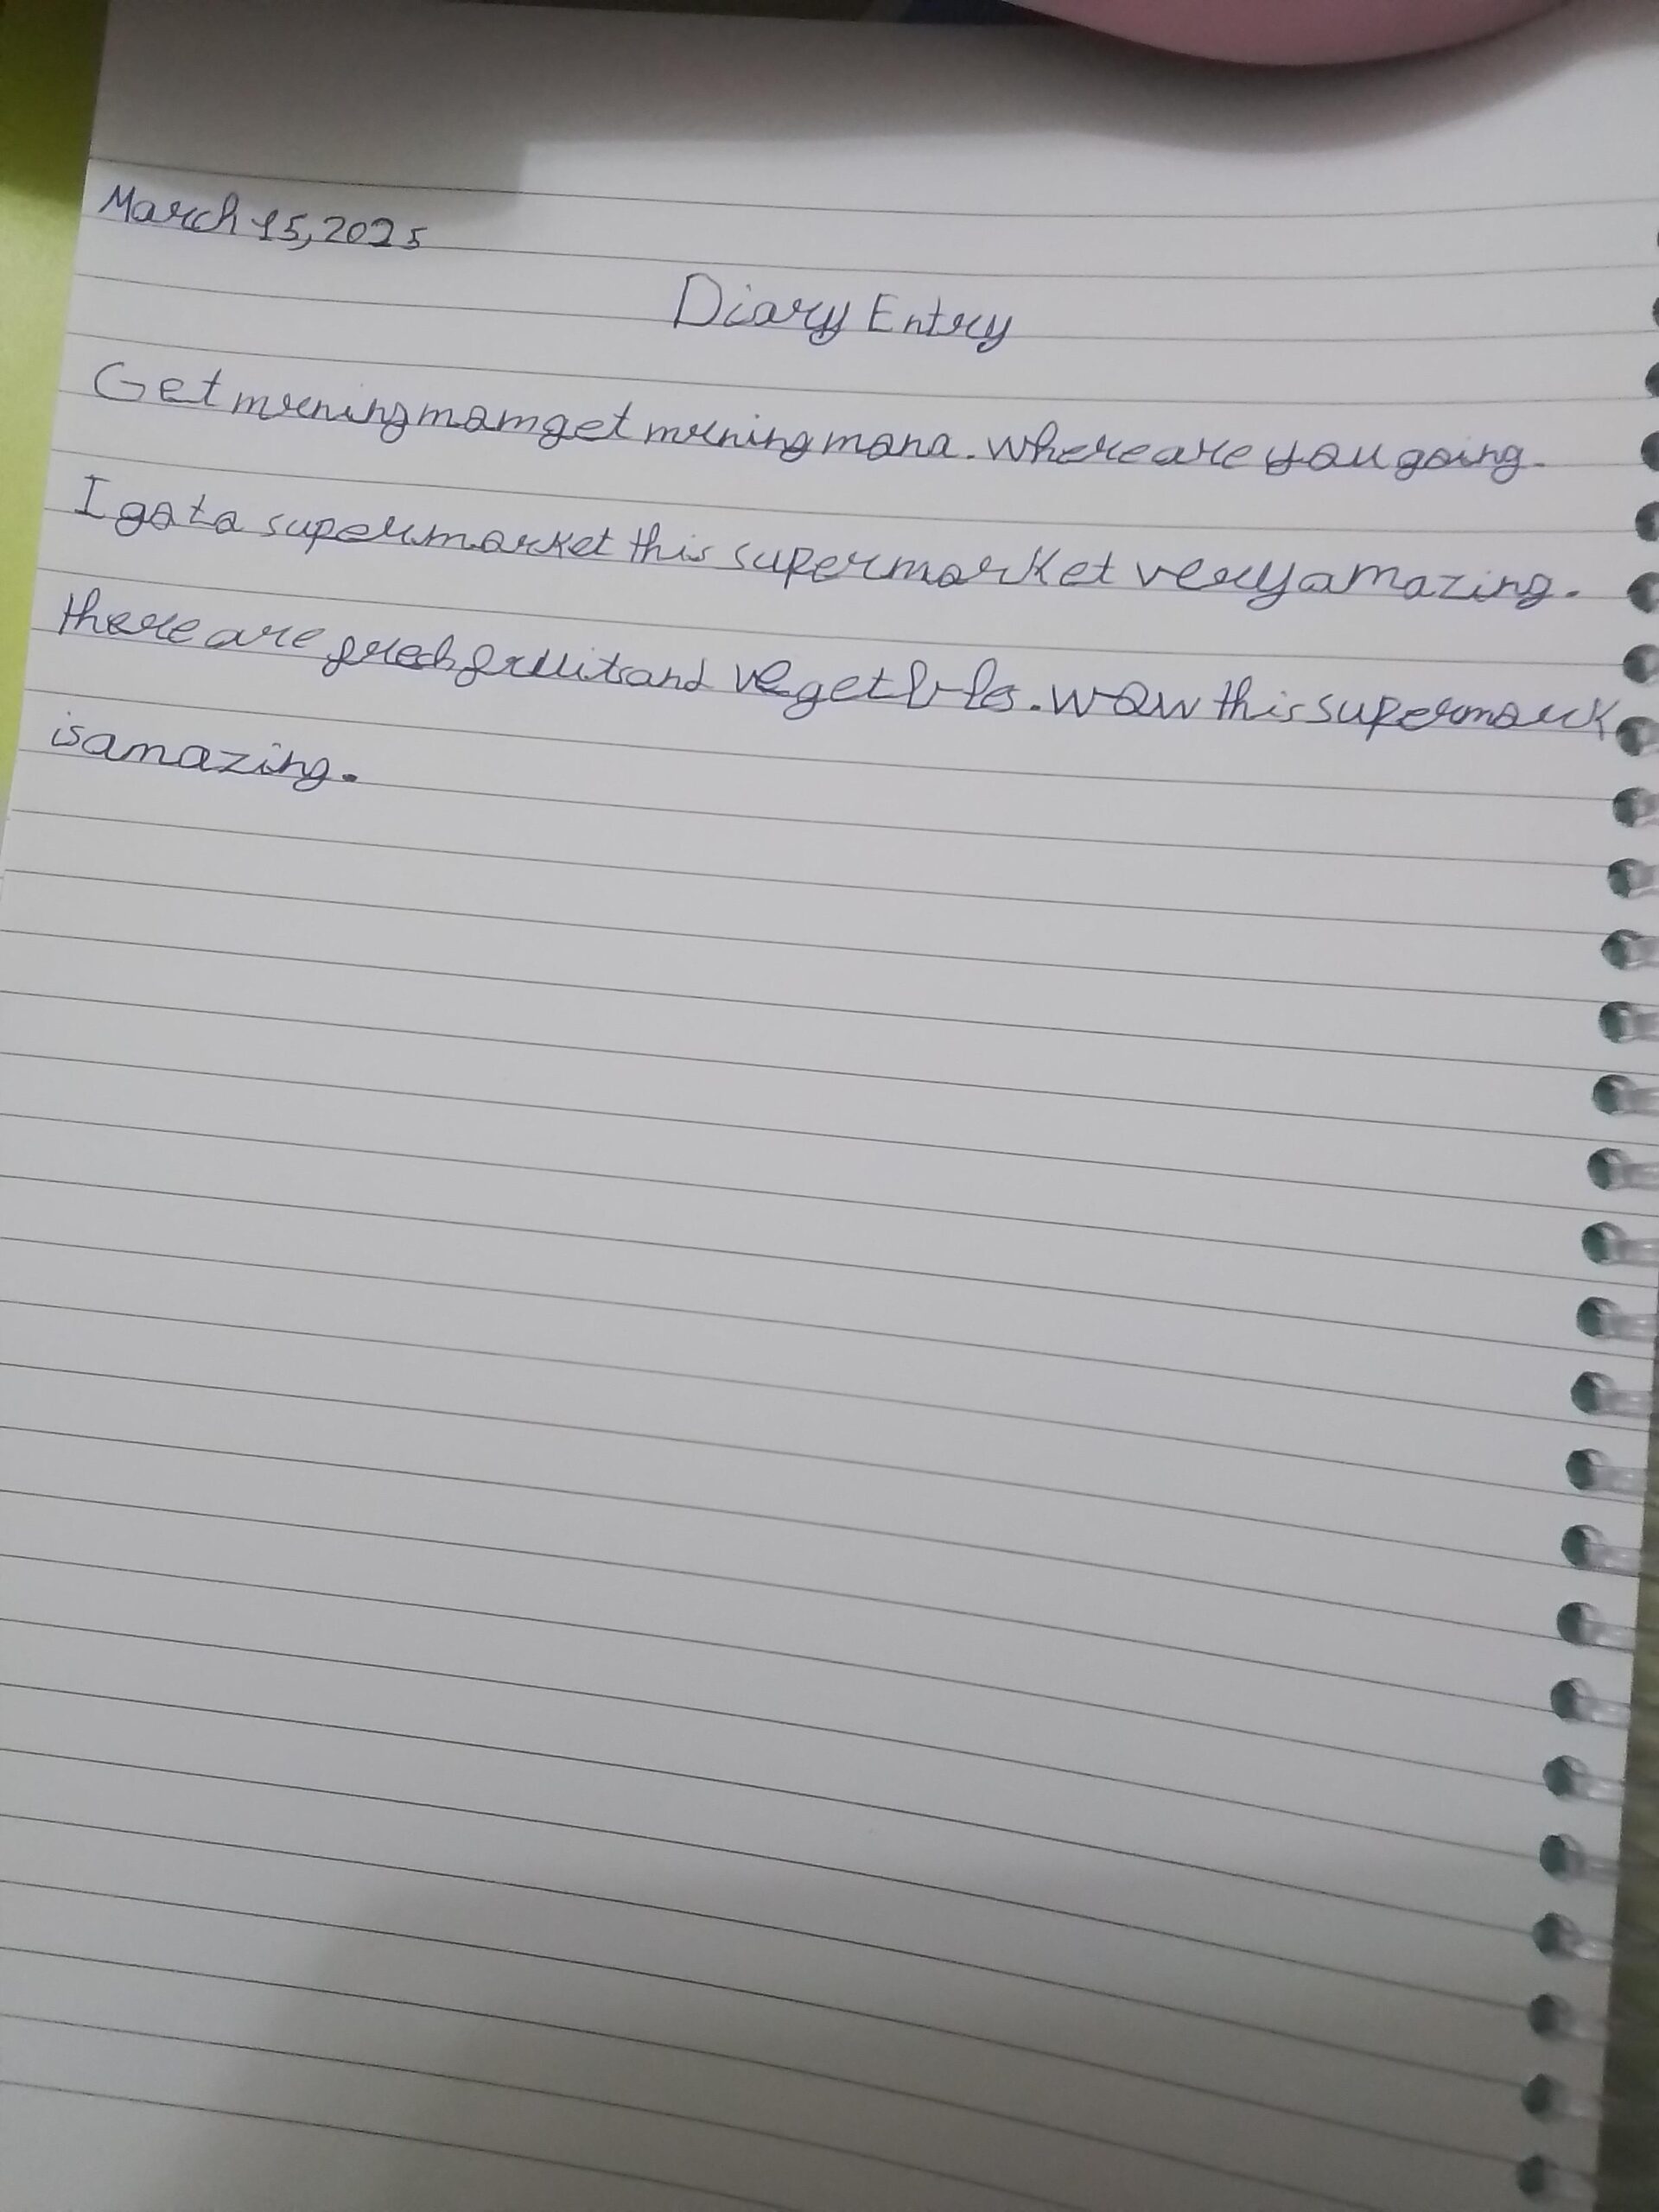 March 15, 2025
Diary Entry
Get morning mom get morning mona. Where are you going.
I go to a supermarket this supermarket very amazing.
there are fresh fruits and vegetbls. Wow this supermark
is amazing.